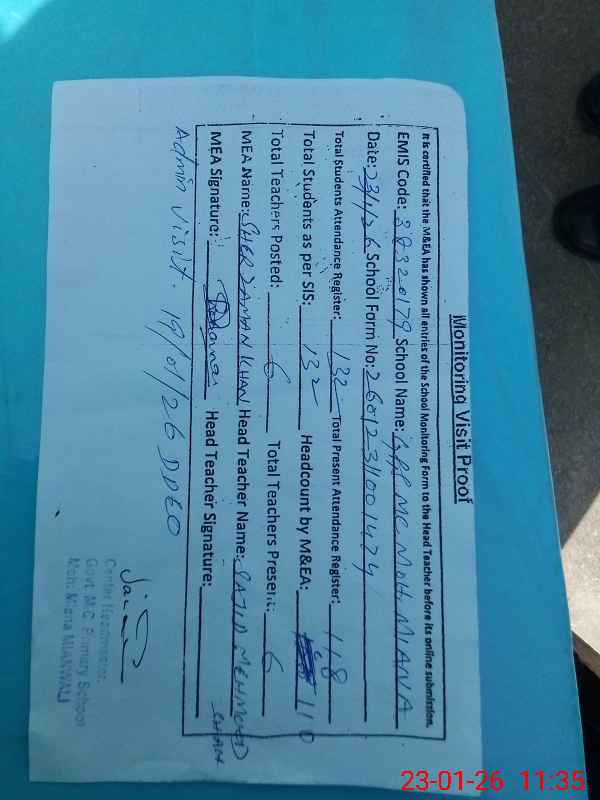 Monitoring Visit Proof
It is certified that the M&EA has shown all entries of the School Monitoring Form to the Head Teacher before its online submission.
EMIS Code: 38320179 School Name: MC MOH. MIANA
Date: 23/1/26 School Form No: 26012311001474
Total Students Attendance Register: 132 Total Present Attendance Register: 118
Total Students as per SIS: 132 Headcount by M&EA: 110
Total Teachers Posted: 6 Total Teachers Present: 6
MEA Name: SHER ZAMAN KHAN Head Teacher Name: SAJID MEHMOOD KHAN
MEA Signature: Head Teacher Signature:
Admin Visit. 19/01/26 DDEO
Center Headmaster
Govt. M.C Primary School
Moh: Miana MIANWALI
23-01-26 11:35